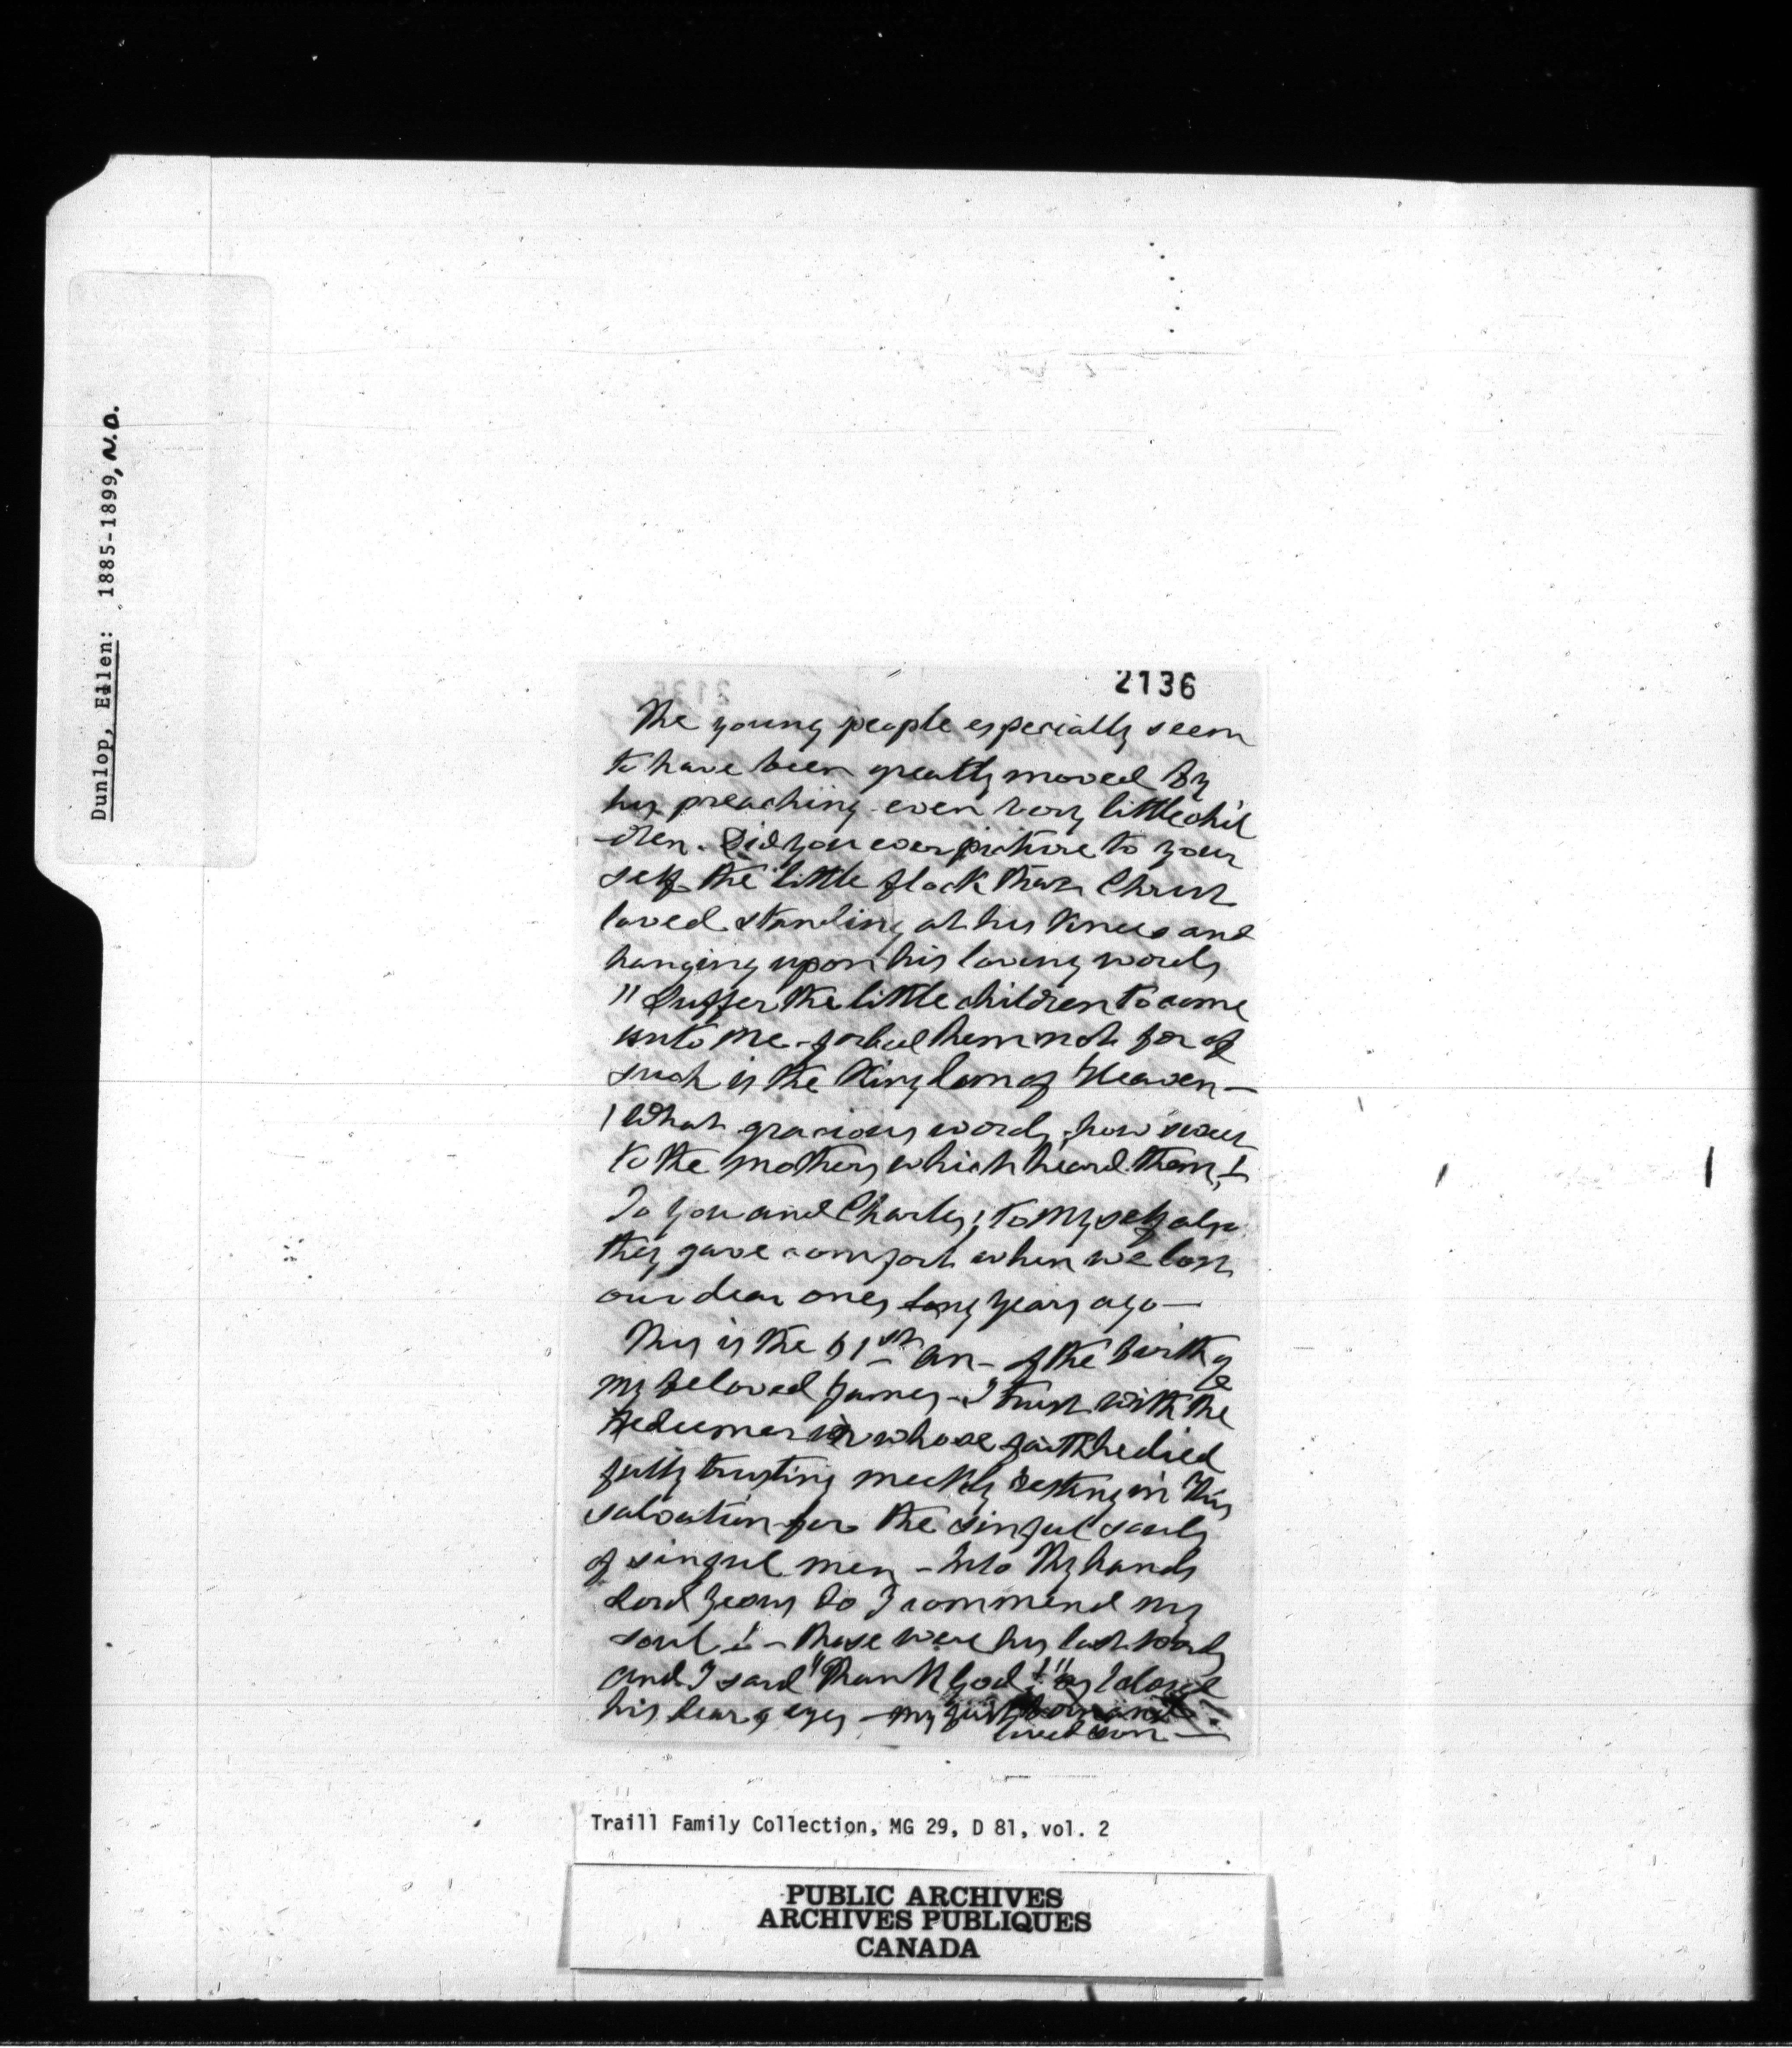 Dunlop, Ellen: 1885-1899, N.D.
2136
The young people especially seem
to have been greatly moved by
his preaching even very little chil
-dren. Did you ever picture to your
self the little flock that Christ
loved standing at his knees and
hanging upon his loving words
"Suffer the little children to come
unto me - forbid them not for of
such is the Kingdom of Heaven -
What gracious words, how sweet
to the mothers which heard them!
To you and Charles, to myself also
they gave comfort when we lost
our dear ones long years ago -
This is the 61st an - of the birth of
my beloved James - I trust with the
Redeemer in whose faith he died
fully trusting meekly resting in His
salvation for the sinful souls
of sinful men - Into Thy hands
Lord Jesus do I commend my
soul! - these were his last words
and I said "Thank God!" as I closed
his dear eyes - my first
loved son -
Traill Family Collection, MG 29, D 81, vol. 2
PUBLIC ARCHIVES
ARCHIVES PUBLIQUES
CANADA